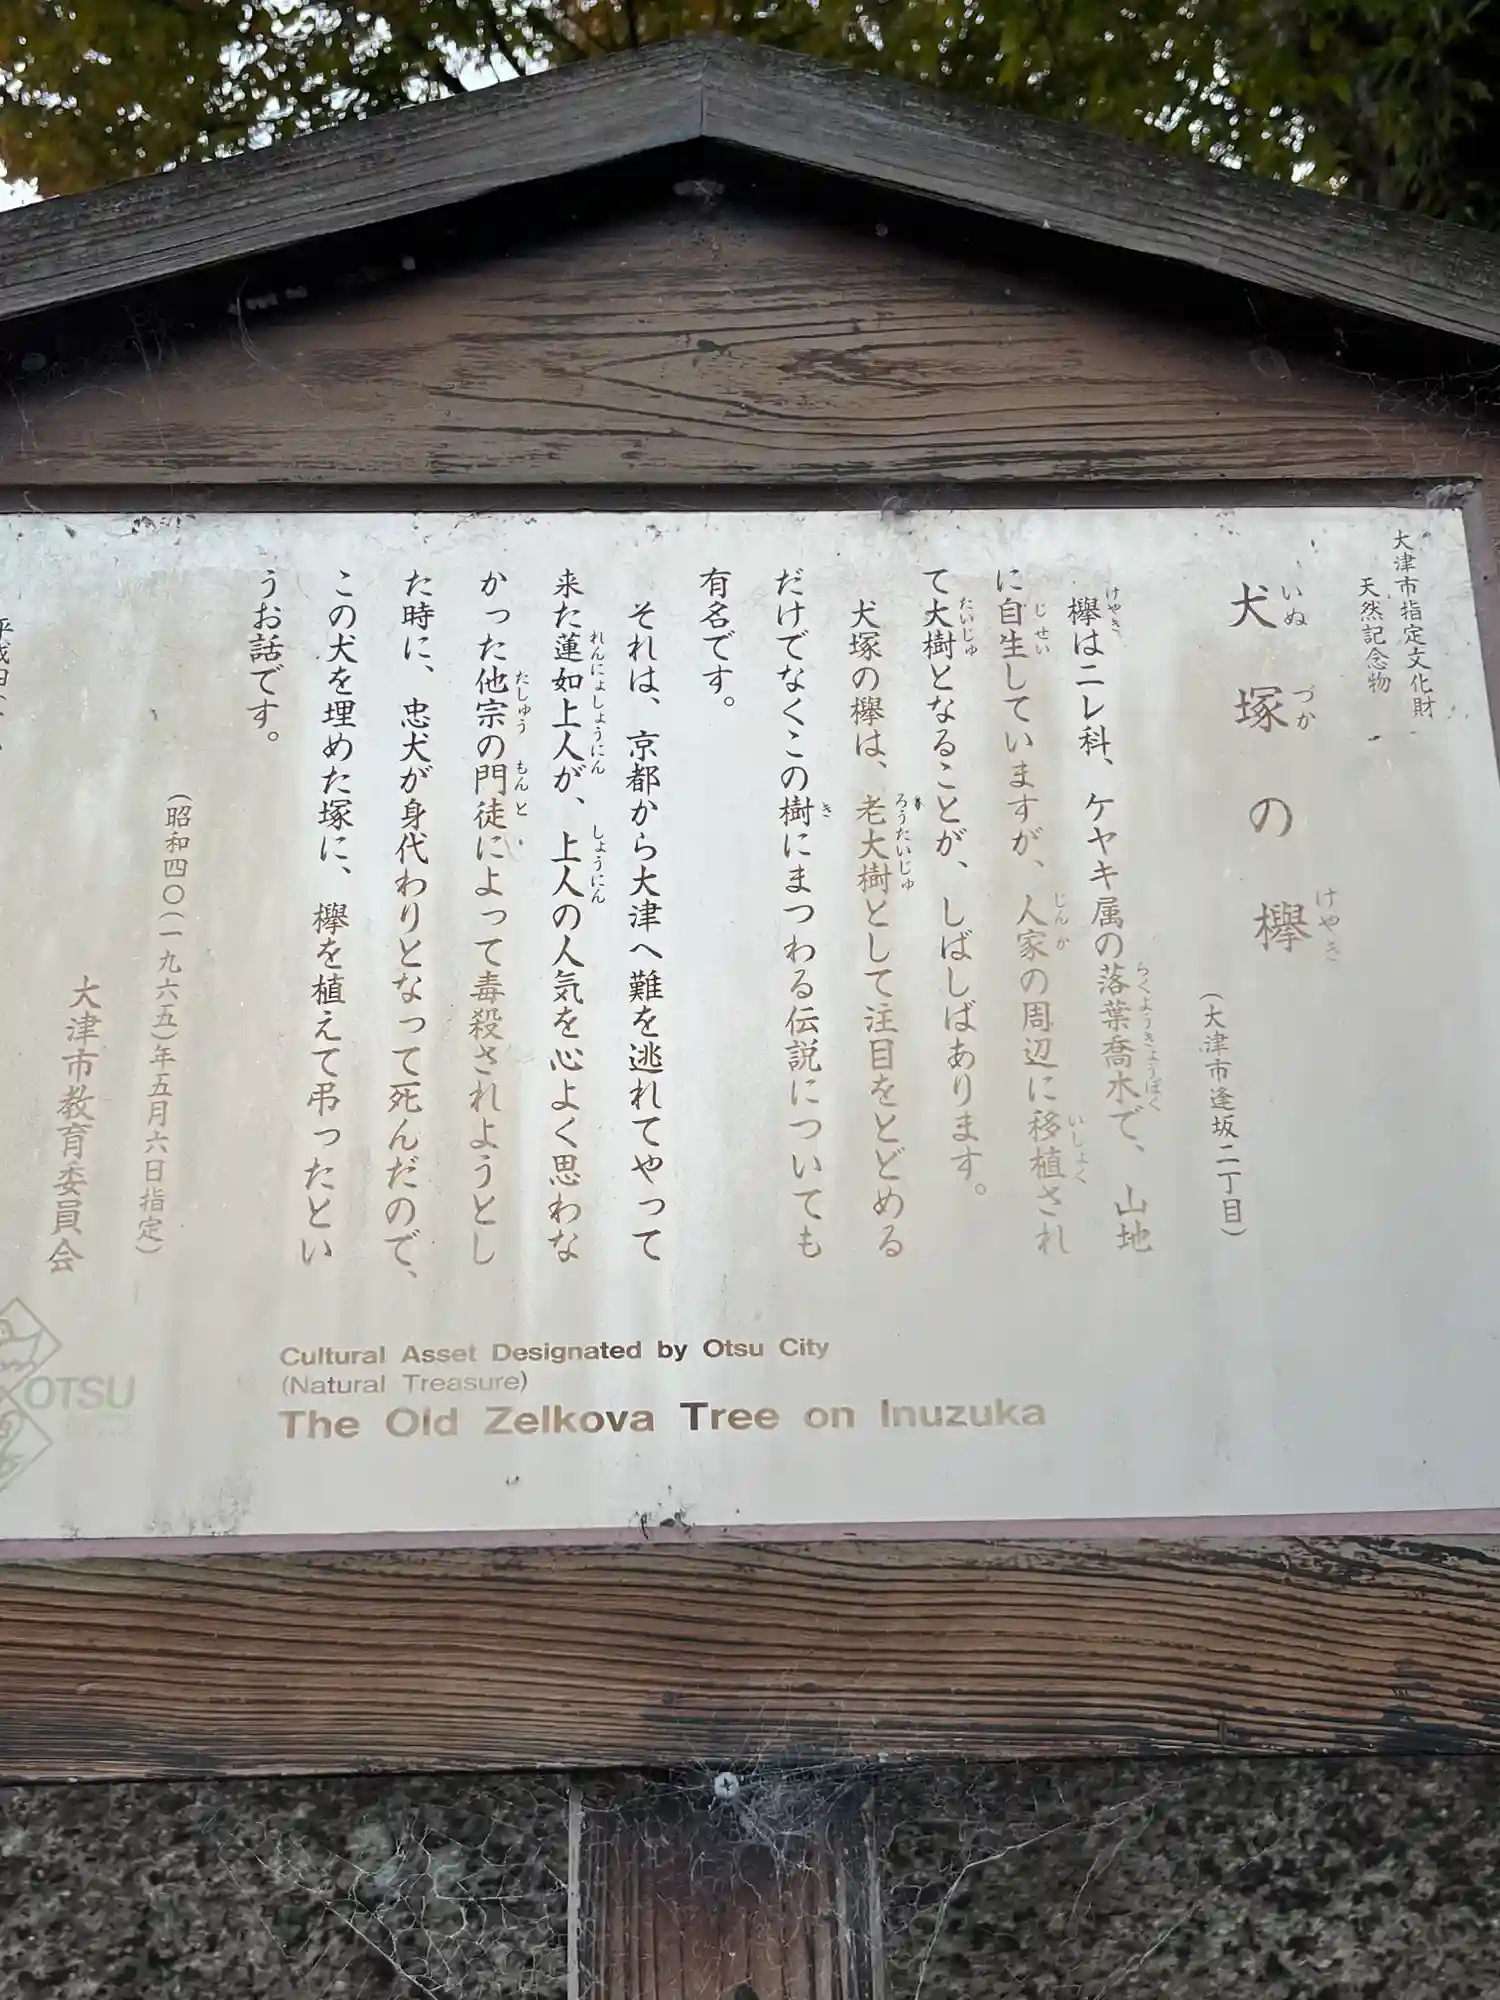 大津市指定文化財
天然記念物
犬塚の欅
いぬ づか けやき
(大津市逢坂二丁目)
欅はニレ科、ケヤキ属の落葉喬木で、山地
けやき らくようきょうぼく
に自生していますが、人家の周辺に移植され
じせい じんか いしょく
て大樹となることが、しばしばあります。
たいじゅ
犬塚の欅は、老大樹として注目をとどめる
ろうたいじゅ
だけでなくこの樹にまつわる伝説についても
き
有名です。
それは、京都から大津へ難を逃れてやって
来た蓮如上人が、上人の人気を心よく思わな
れんにょしょうにん しょうにん
かった他宗の門徒によって毒殺されようとし
たしゅう もんと
た時に、忠犬が身代わりとなって死んだので、
この犬を埋めた塚に、欅を植えて弔ったとい
うお話です。
(昭和四〇(一九六五)年五月六日指定)
大津市教育委員会
Cultural Asset Designated by Otsu City
(Natural Treasure)
The Old Zelkova Tree on Inuzuka
OTSU